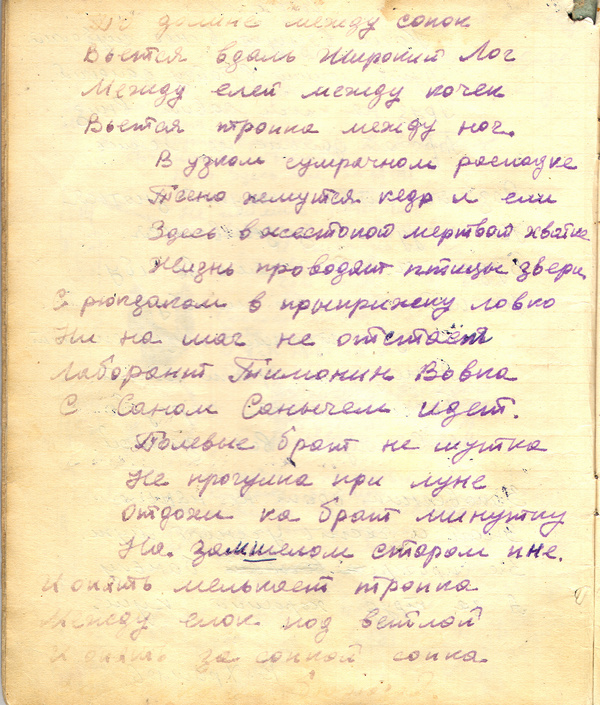 По долине между сопок
Вьется вдаль широкий Лог
Между елей между кочек
Вьется тропка между ног.
В узком сумрачном распадке
Тесно жмутся кедр и ели
Здесь в жестокой мертвой хватке
Жизнь проводят птицы звери
С рюкзаком в прыприжску ловко
Ни на шаг не отстает
Лаборант Тимонин Вовка
С Саном Санычем идет.
Полевые брат не шутка
Не прогулка при луне
Отдохни ка брат минутку
На замшелом старом пне.
И опять мелькает тропка
Между елок под ветлой
И опять за сопкой сопка